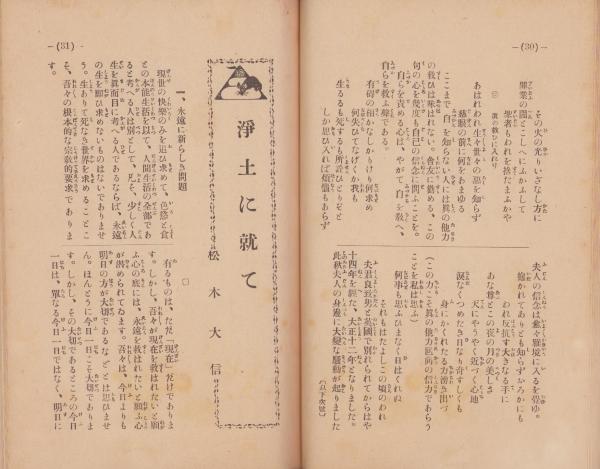 —(30)—
その火の燃りいざなし方に
罪業の闇ここしへにふかふして
聖者もわれを捨たまふかや
㊂ 眞の救ひに入れり
あはれわれ生々世々の惡を知らず
慈眼の前に何をあまゆる
ここまで「自」を知らない人には眞の他力
の救ひは味はれない。會友に勸める、この
句の心を幾度も自己の信念に問ふことを。
自らを責める心は、やがて「自」を敎へ、
自らを救ふ聲である。
有碍の相かなしかりけり何求め
何失ひてなげくか我も
生るるも死するも所詮ひとりぞと
しか思ひ入れば煩惱もあらず
夫人の信念は愈々嚴境に入るを覺ゆ。
抱かれてありとも知らずおろかにも
われ反抗す大きなる手に
あな尊とこの夜の月の美しさ
天にやうやく近づく心地
淚なくつめたき日なり奇すしくも
身にかくれたる力湧き出づ
(この力こそ眞の他力囘向の信力であらう
ことを私は思ふ)
それもはたよしこの頃のわれ
何事も思ふひまなく日はくれぬ
夫君良致男と英國で別れられてからはや
十四年を經た、大正十二年となりました。
此秋夫人の身邊に大變な騷動が起りました
(以下次號)
—(31)—
淨土に就て
松木大信
一、永遠に新らしき問題
現世の快樂のみを追ひ求めて、色慾と食
との本能生活を以て、人間生活の全部であ
ると考へる人は別として、兄そ、少しく人
生を眞面目に考へる人であるならば、永遠
の生を願ひ求めないものはないでありませ
う。生ありて死なき世界を求めることこ
そ、吾々の根本的な宗敎的要求でありま
す。
□
有るものは、ただ「現在」だけでありま
す。しかし、吾々が現在を救はれたいと願
ふ心の底には、永遠を救はれたいと願ふ心
が潜められてゐます。吾々は、今日よりも
明日の方が大切であるなどとは思ひませ
ん。ほんとうに今日一日こそ大切でありま
す。しかし、その大切であるところの今日
一日は、單なる今日一日ではなく、明日に